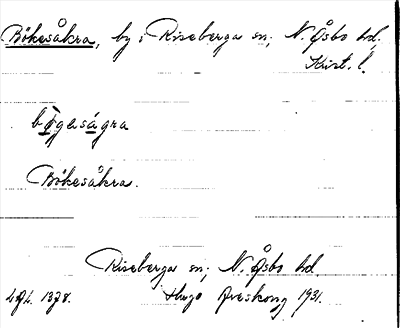 Bökesåkra, by i Riseberga sn, N. Åsbo hd,
Krist. l.
bø̀gəsågra
Bökesåkra.
Riseberga sn, N. Åsbo hd.
1378. Hugo Areskoug 1931.